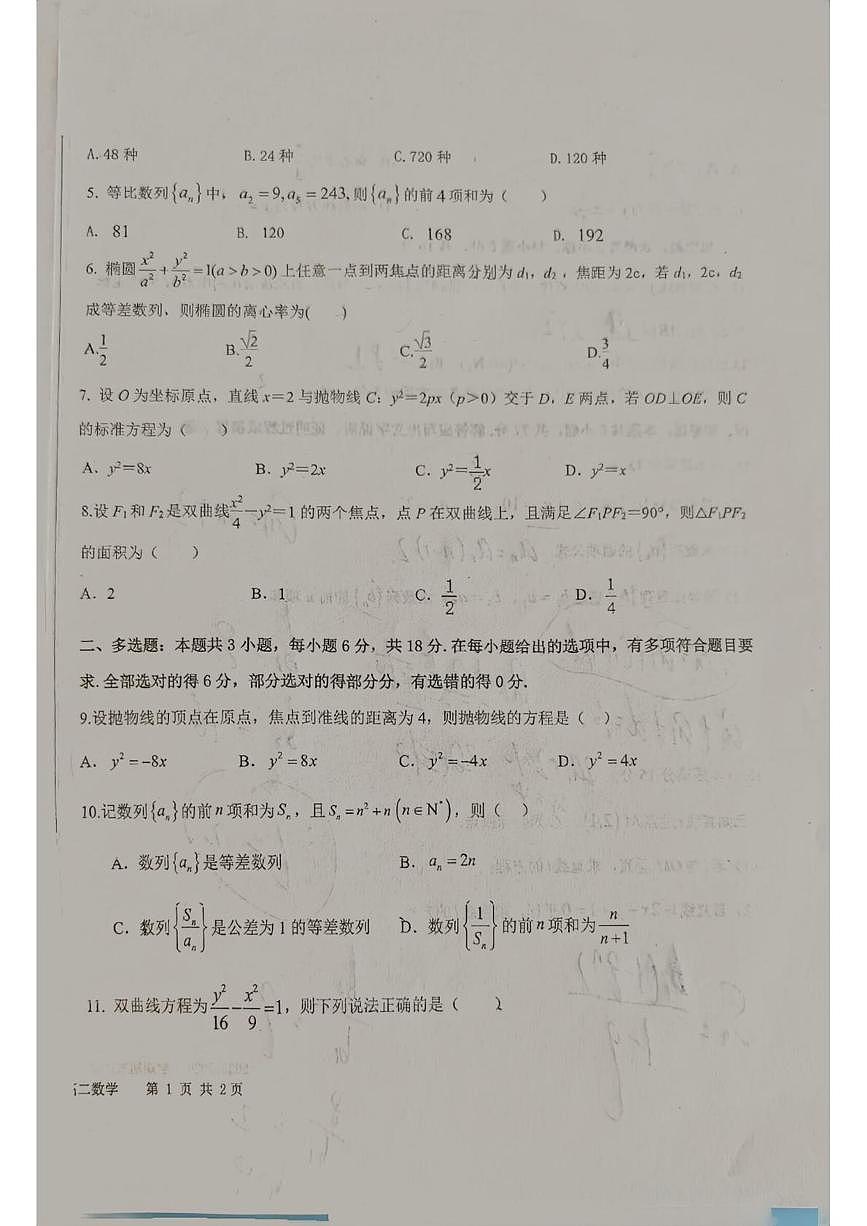 A. 48种 B. 24种 C. 720种 D. 120种
5. 等比数列{aₙ}中, a₂=9, a₅=243, 则{aₙ}的前4项和为( )
A. 81 B. 120 C. 168 D. 192
6. 椭圆x²/a²+y²/b²=1(a>b>0)上任意一点到两焦点的距离分别为d₁, d₂, 焦距为2c, 若d₁, 2c, d₂
成等差数列、则椭圆的离心率为( )
A.1/2 B.√2/2 C.√3/2 D.3/4
7. 设O为坐标原点，直线x=2与抛物线C：y²=2px（p>0）交于D，E两点，若OD⊥OE，则C
的标准方程为（ ）
A、y²=8x B．y²=2x C．y²=1/2x D．y²=x
8.设F₁和F₂是双曲线x²/4−y²=1的两个焦点，点P在双曲线上，且满足∠F₁PF₂=90°，则△F₁PF₂
的面积为（ ）
A．2 B．1 C．1/2 D．1/4
二、多选题：本题共3小题，每小题6分，共18分.在每小题给出的选项中，有多项符合题目要
求.全部选对的得6分，部分选对的得部分分，有选错的得0分.
9.设抛物线的顶点在原点，焦点到准线的距离为4，则抛物线的方程是（ ）
A．y²=-8x B．y²=8x C．y²=-4x D．y²=4x
10.记数列{aₙ}的前n项和为Sₙ，且Sₙ=n²+n(n∈N*)，则（ ）
A．数列{aₙ}是等差数列 B．aₙ=2n
C．数列{Sₙ/aₙ}是公差为1的等差数列 D．数列{1/Sₙ}的前n项和为n/(n+1)
11. 双曲线方程为y²/16−x²/9=1，则下列说法正确的是（ ）
二数学 第 1 页 共 2 页